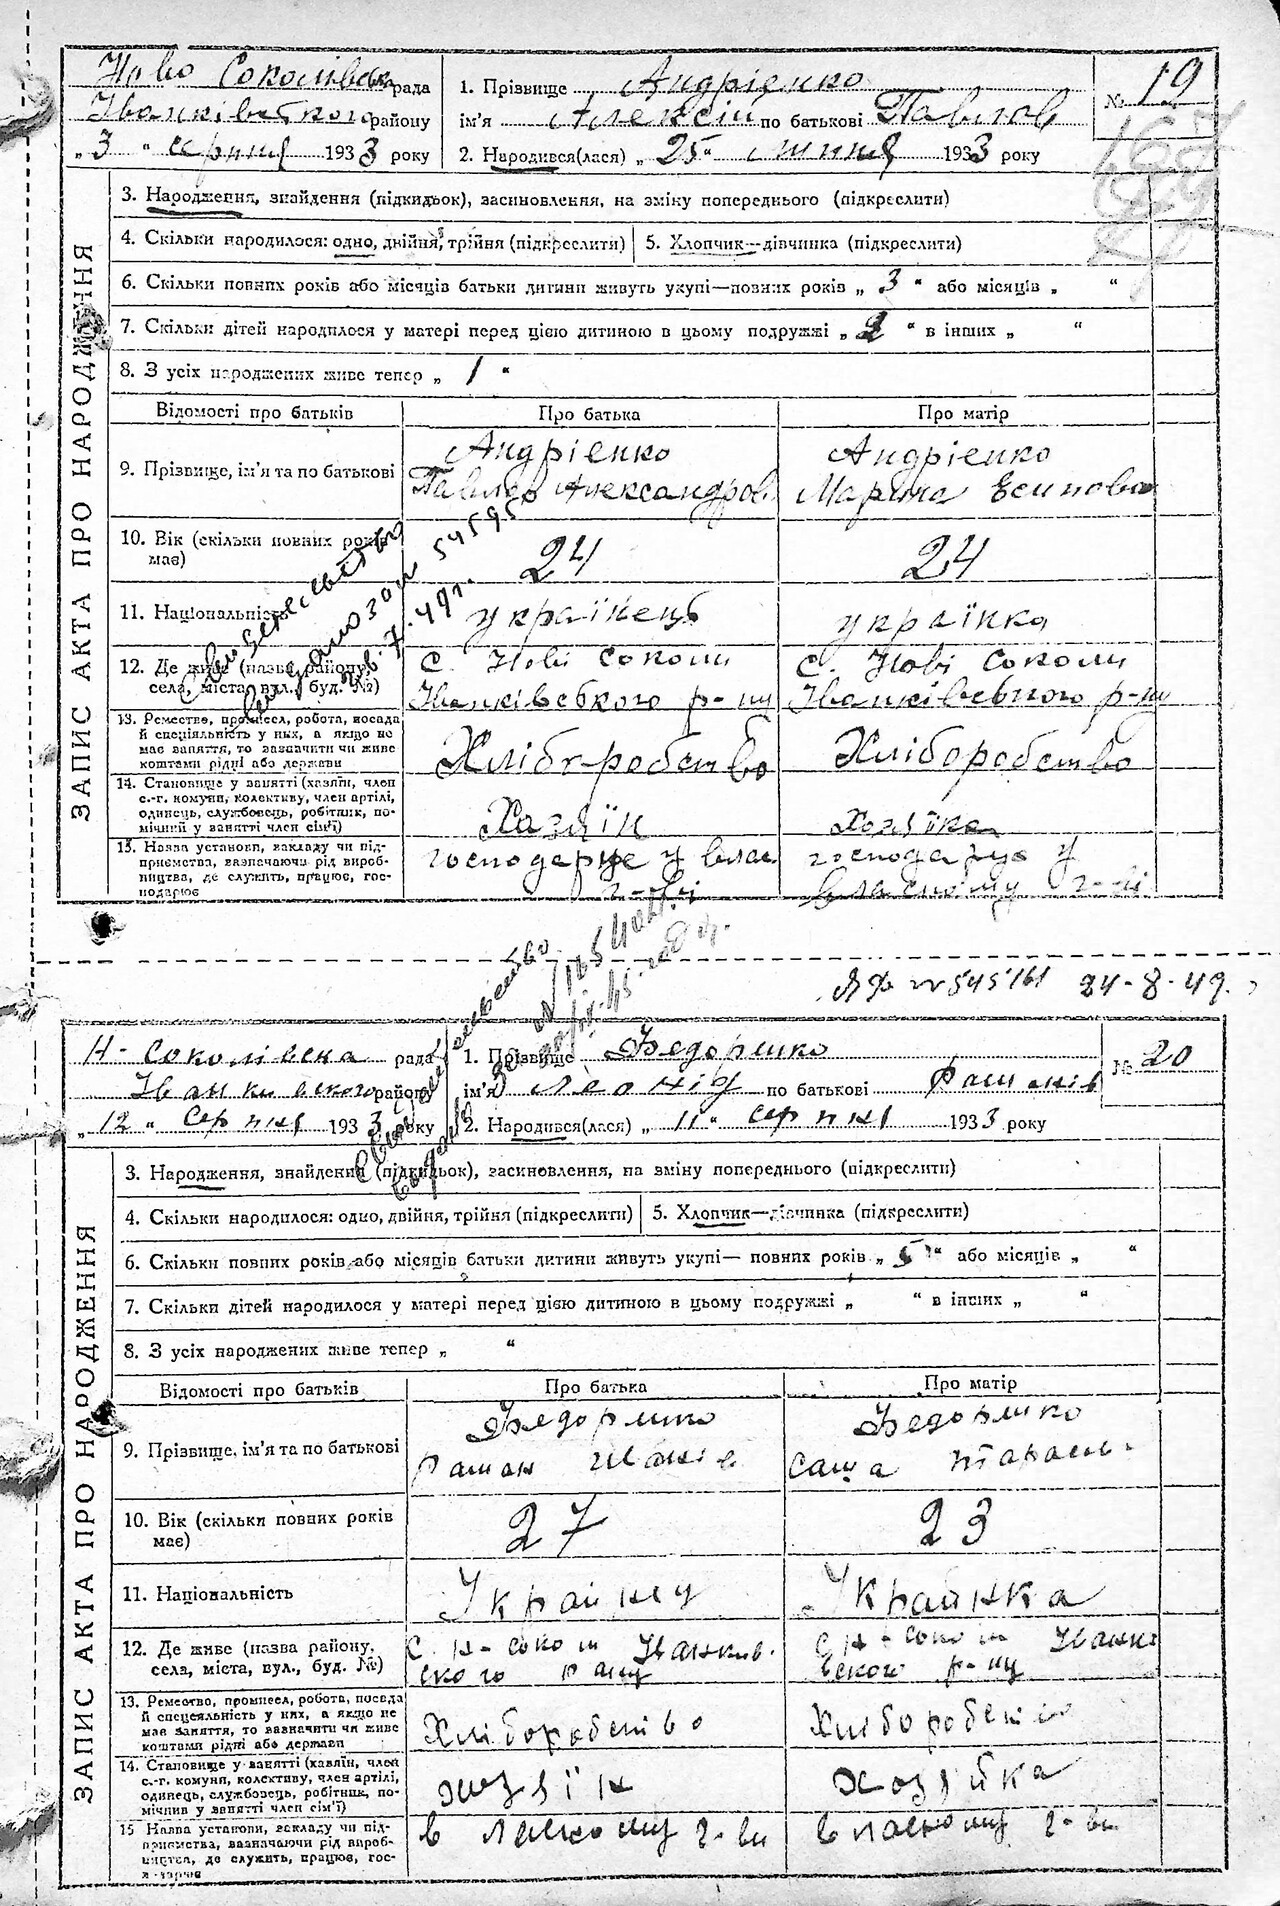 Ново Соколівськ рада
Іванківського району
„ 3 “ серпня 1933 року
1. Прізвище Андрієнко
ім'я Алексій по батькові Павлов
2. Народився(лася) „ 25 “ липня 1933 року
№ 19
ЗАПИС АКТА ПРО НАРОДЖЕННЯ
3. Народження, знайдення (підкидьок), засиновлення, на зміну попереднього (підкреслити)
4. Скільки народилося: одно, двійня, трійня (підкреслити)
5. Хлопчик—дівчинка (підкреслити)
6. Скільки повних років або місяців батьки дитини живуть укупі—повних років „ 3 “ або місяців „ “
7. Скільки дітей народилося у матері перед цією дитиною в цьому подружжі „ 2 “ в інших „ “
8. З усіх народжених живе тепер „ 1 “
Відомості про батьків
Про батька
Про матір
9. Прізвище, ім'я та по батькові
Андріенко
Павлов Александров
Андріенко
Марина Есипова
10. Вік (скільки повних років
має)
24
24
11. Національність
українець
українка
12. Де живе (назва району,
села, міста, вул., буд. №)
с. Нові Соколи
Іванківського р-ну
с. Нові Соколи
Іванківського р-ну
13. Ремество, промисел, робота, посада
й спеціяльність у них, а якщо не
має заняття, то зазначити чи живе
коштами рідні або держави
Хліборобство
Хліборобство
14. Становище у занятті (хазяїн, член
с.-г. комуни, колективу, член артілі,
одинець, службовець, робітник, по-
мічний у занятті член сім'ї)
Хазяїн
Хозяїка
15. Назва установи, закладу чи під-
приємства, зазначаючи рід вироб-
ництва, де служить, працює, гос-
подарює
господарює у влас
г-ві
господарює у
власному г-ві
Свидетельство
54595
7. 49г.
Свидетельство
№ 545161 24-8-49.
Н-Соколівска рада
Іванкивского району
„ 12 “ серпня 1933 року
1. Прізвище Федоренко
ім'я Леонід по батькові Раманів
2. Народився(лася) „ 11 “ серпня 1933 року
№ 20
ЗАПИС АКТА ПРО НАРОДЖЕННЯ
3. Народження, знайдення (підкидьок), засиновлення, на зміну попереднього (підкреслити)
4. Скільки народилося: одно, двійня, трійня (підкреслити)
5. Хлопчик—дівчинка (підкреслити)
6. Скільки повних років або місяців батьки дитини живуть укупі— повних років „ 5 “ або місяців „ “
7. Скільки дітей народилося у матері перед цією дитиною в цьому подружжі „ “ в інших „ “
8. З усіх народжених живе тепер „ “
Відомості про батьків
Про батька
Про матір
9. Прізвище, ім'я та по батькові
Федоренко
Раман Іванів
Федоренко
Саша Тарасів.
10. Вік (скільки повних років
має)
27
23
11. Національність
Украинец
Украинка
12. Де живе (назва району,
села, міста, вул., буд. №)
с. Н-Соколи Іванкив.
ского раену
с Н-Соколи Іванки
вского р-ну
13. Ремество, промисел, робота, посада
й спецеяльність у них, а якщо не
має заняття, то зазначити чи живе
коштами рідні або держави
Хліборобство
Хліборобство
14. Становище у занятті (хазяїн, член
с.-г. комуни, колективу, член артілі,
одинець, службовець, робітник, по-
мічник у занятті член сім'ї)
хозяїн
хозяйка
15 Назва установи, закладу чи під-
приємства, вазначаючи рід вироб-
ництва, де служить, працює, гос-
в ласному г-ви
в ласному г-ви